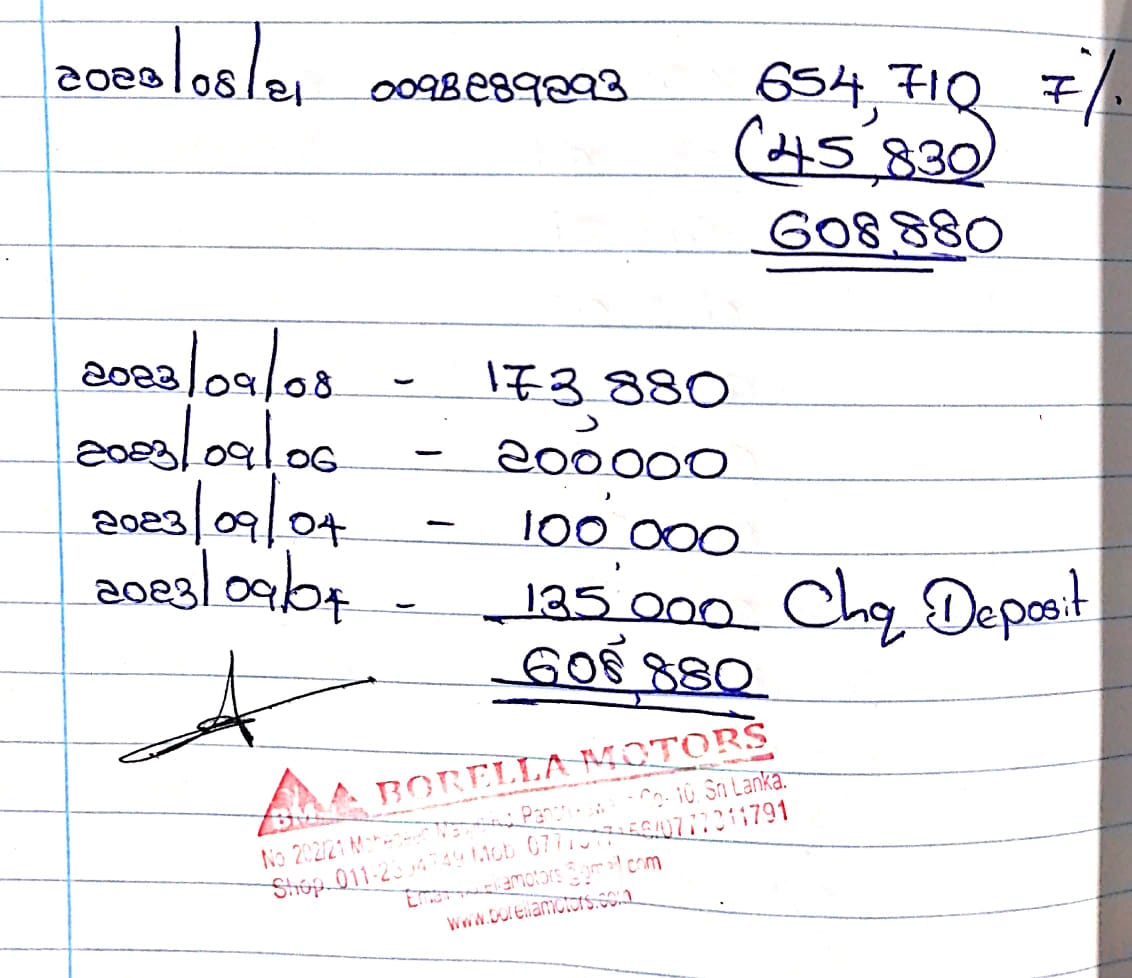 2023/08/21 009BE89293 654,710 7%
(45,830)
608,880
2023/09/08 - 173,880
2023/09/06 - 200,000
2023/09/04 - 100,000
2023/09/04 - 135,000 Chq Deposit
608,880
BORELLA MOTORS
No 202/21 Co- 10, Sri Lanka.
Shop. 011- Mob 0777311791
Email
www.borellamotors.com